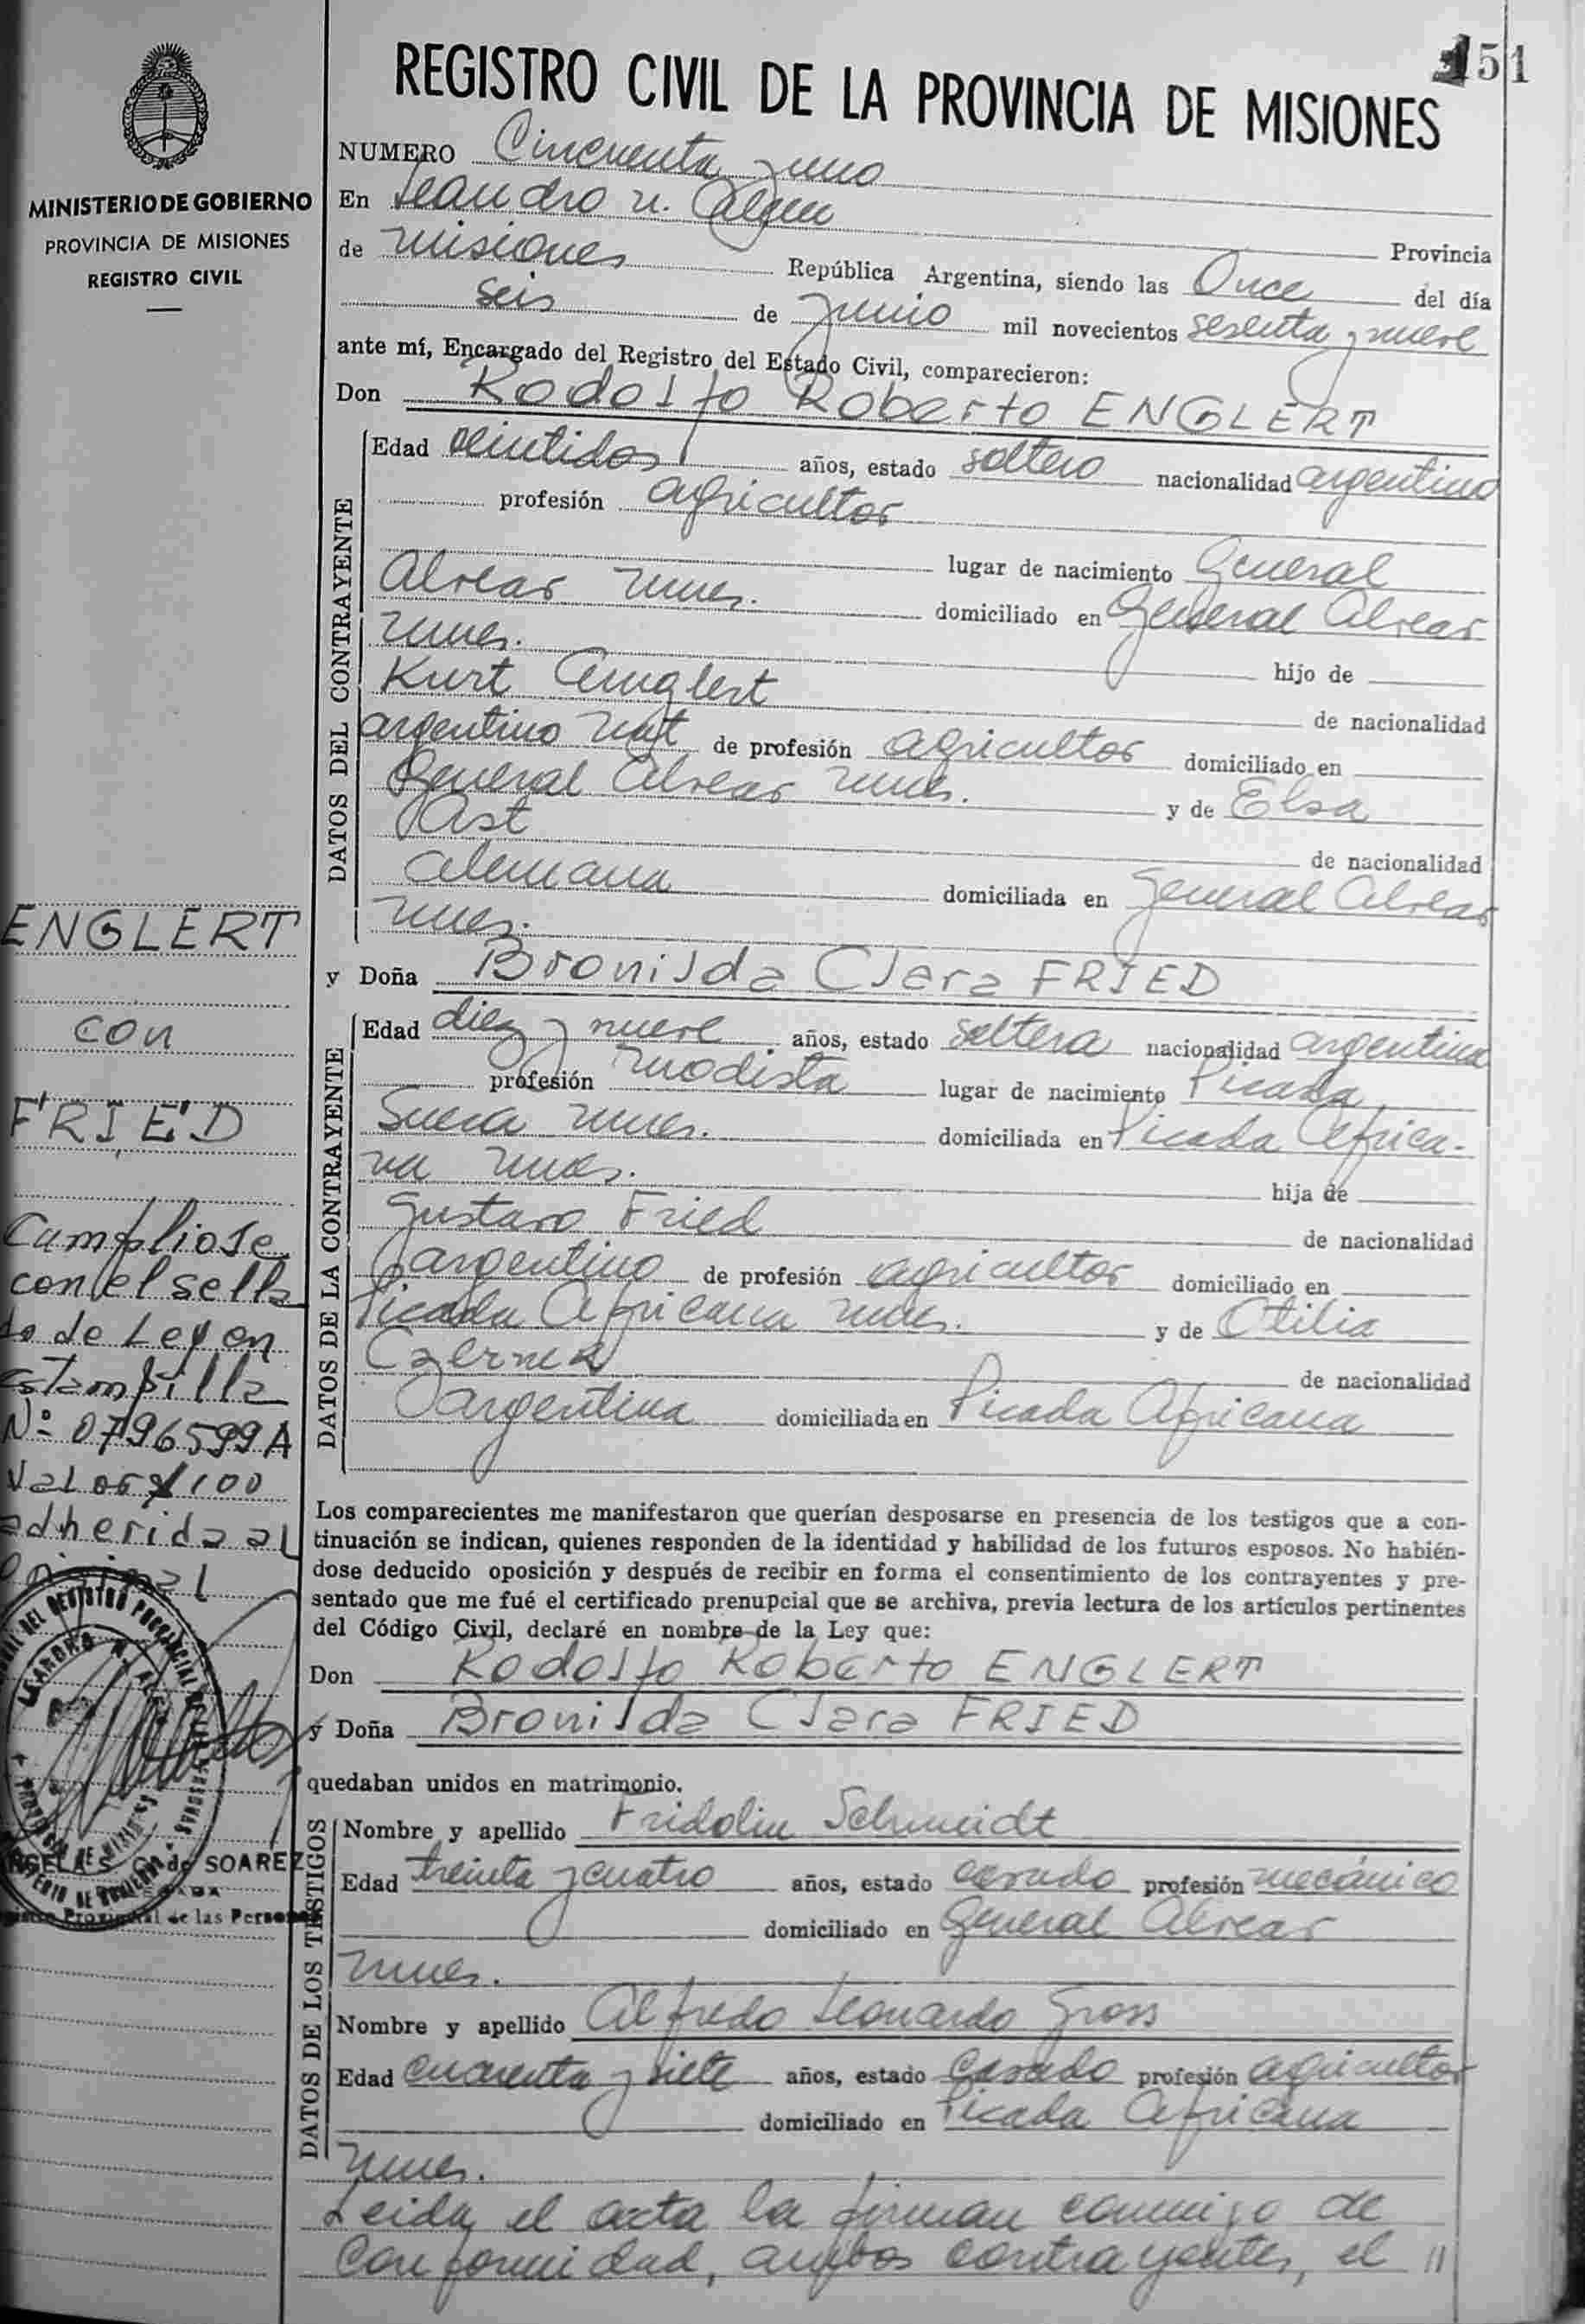 151
REGISTRO CIVIL DE LA PROVINCIA DE MISIONES
MINISTERIO DE GOBIERNO
PROVINCIA DE MISIONES
REGISTRO CIVIL
NUMERO Cincuenta y uno
En Leandro N. Alem Provincia
de Misiones República Argentina, siendo las Once del día
seis de Junio mil novecientos sesenta y nueve
ante mí, Encargado del Registro del Estado Civil, comparecieron:
Don Rodolfo Roberto ENGLERT
DATOS DEL CONTRAYENTE
Edad veintidos años, estado soltero nacionalidad argentino
profesión agricultor
lugar de nacimiento General
Alvear Mnes. domiciliado en General Alvear
Mnes. hijo de
Kurt Englert de nacionalidad
argentino nat de profesión agricultor domiciliado en
General Alvear Mnes. y de Elsa
Ast de nacionalidad
alemana domiciliada en General Alvear
Mnes.
y Doña Bronilda Clara FRIED
DATOS DE LA CONTRAYENTE
Edad diez y nueve años, estado soltera nacionalidad argentina
profesión modista lugar de nacimiento Picada
Sueca Mnes. domiciliada en Picada Africa-
na Mnes. hija de
Gustavo Fried de nacionalidad
argentino de profesión agricultor domiciliado en
Picada Africana Mnes. y de Otilia
de nacionalidad
argentina domiciliada en Picada Africana
ENGLERT
con
FRIED
Cumpliose
con el sella
do de Ley en
estampilla
Nº 0796599A
Valor $ 100
adherida al
original
Los comparecientes me manifestaron que querían desposarse en presencia de los testigos que a con-
tinuación se indican, quienes responden de la identidad y habilidad de los futuros esposos. No habién-
dose deducido oposición y después de recibir en forma el consentimiento de los contrayentes y pre-
sentado que me fué el certificado prenupcial que se archiva, previa lectura de los artículos pertinentes
del Código Civil, declaré en nombre de la Ley que:
Don Rodolfo Roberto ENGLERT
y Doña Bronilda Clara FRIED
quedaban unidos en matrimonio.
DATOS DE LOS TESTIGOS
Nombre y apellido Fridolin Schmidt
Edad treinta y cuatro años, estado casado profesión mecánico
domiciliado en General Alvear
Mnes.
Nombre y apellido Alfredo Leonardo Gross
Edad cuarenta y siete años, estado casado profesión agricultor
domiciliado en Picada Africana
Mnes.
Leida el acta la firman conmigo de
conformidad, ambos contrayentes, el //
de SOAREZ
Provincial de las Personas